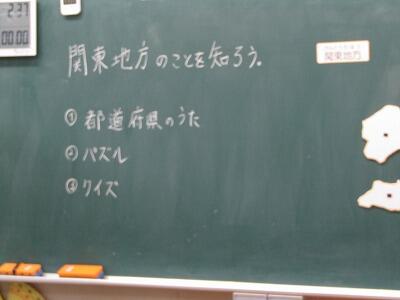 2:37
00.00
関東地方のことを知ろう。
関東地方
① 都道府県のうた
② パズル
③ クイズ